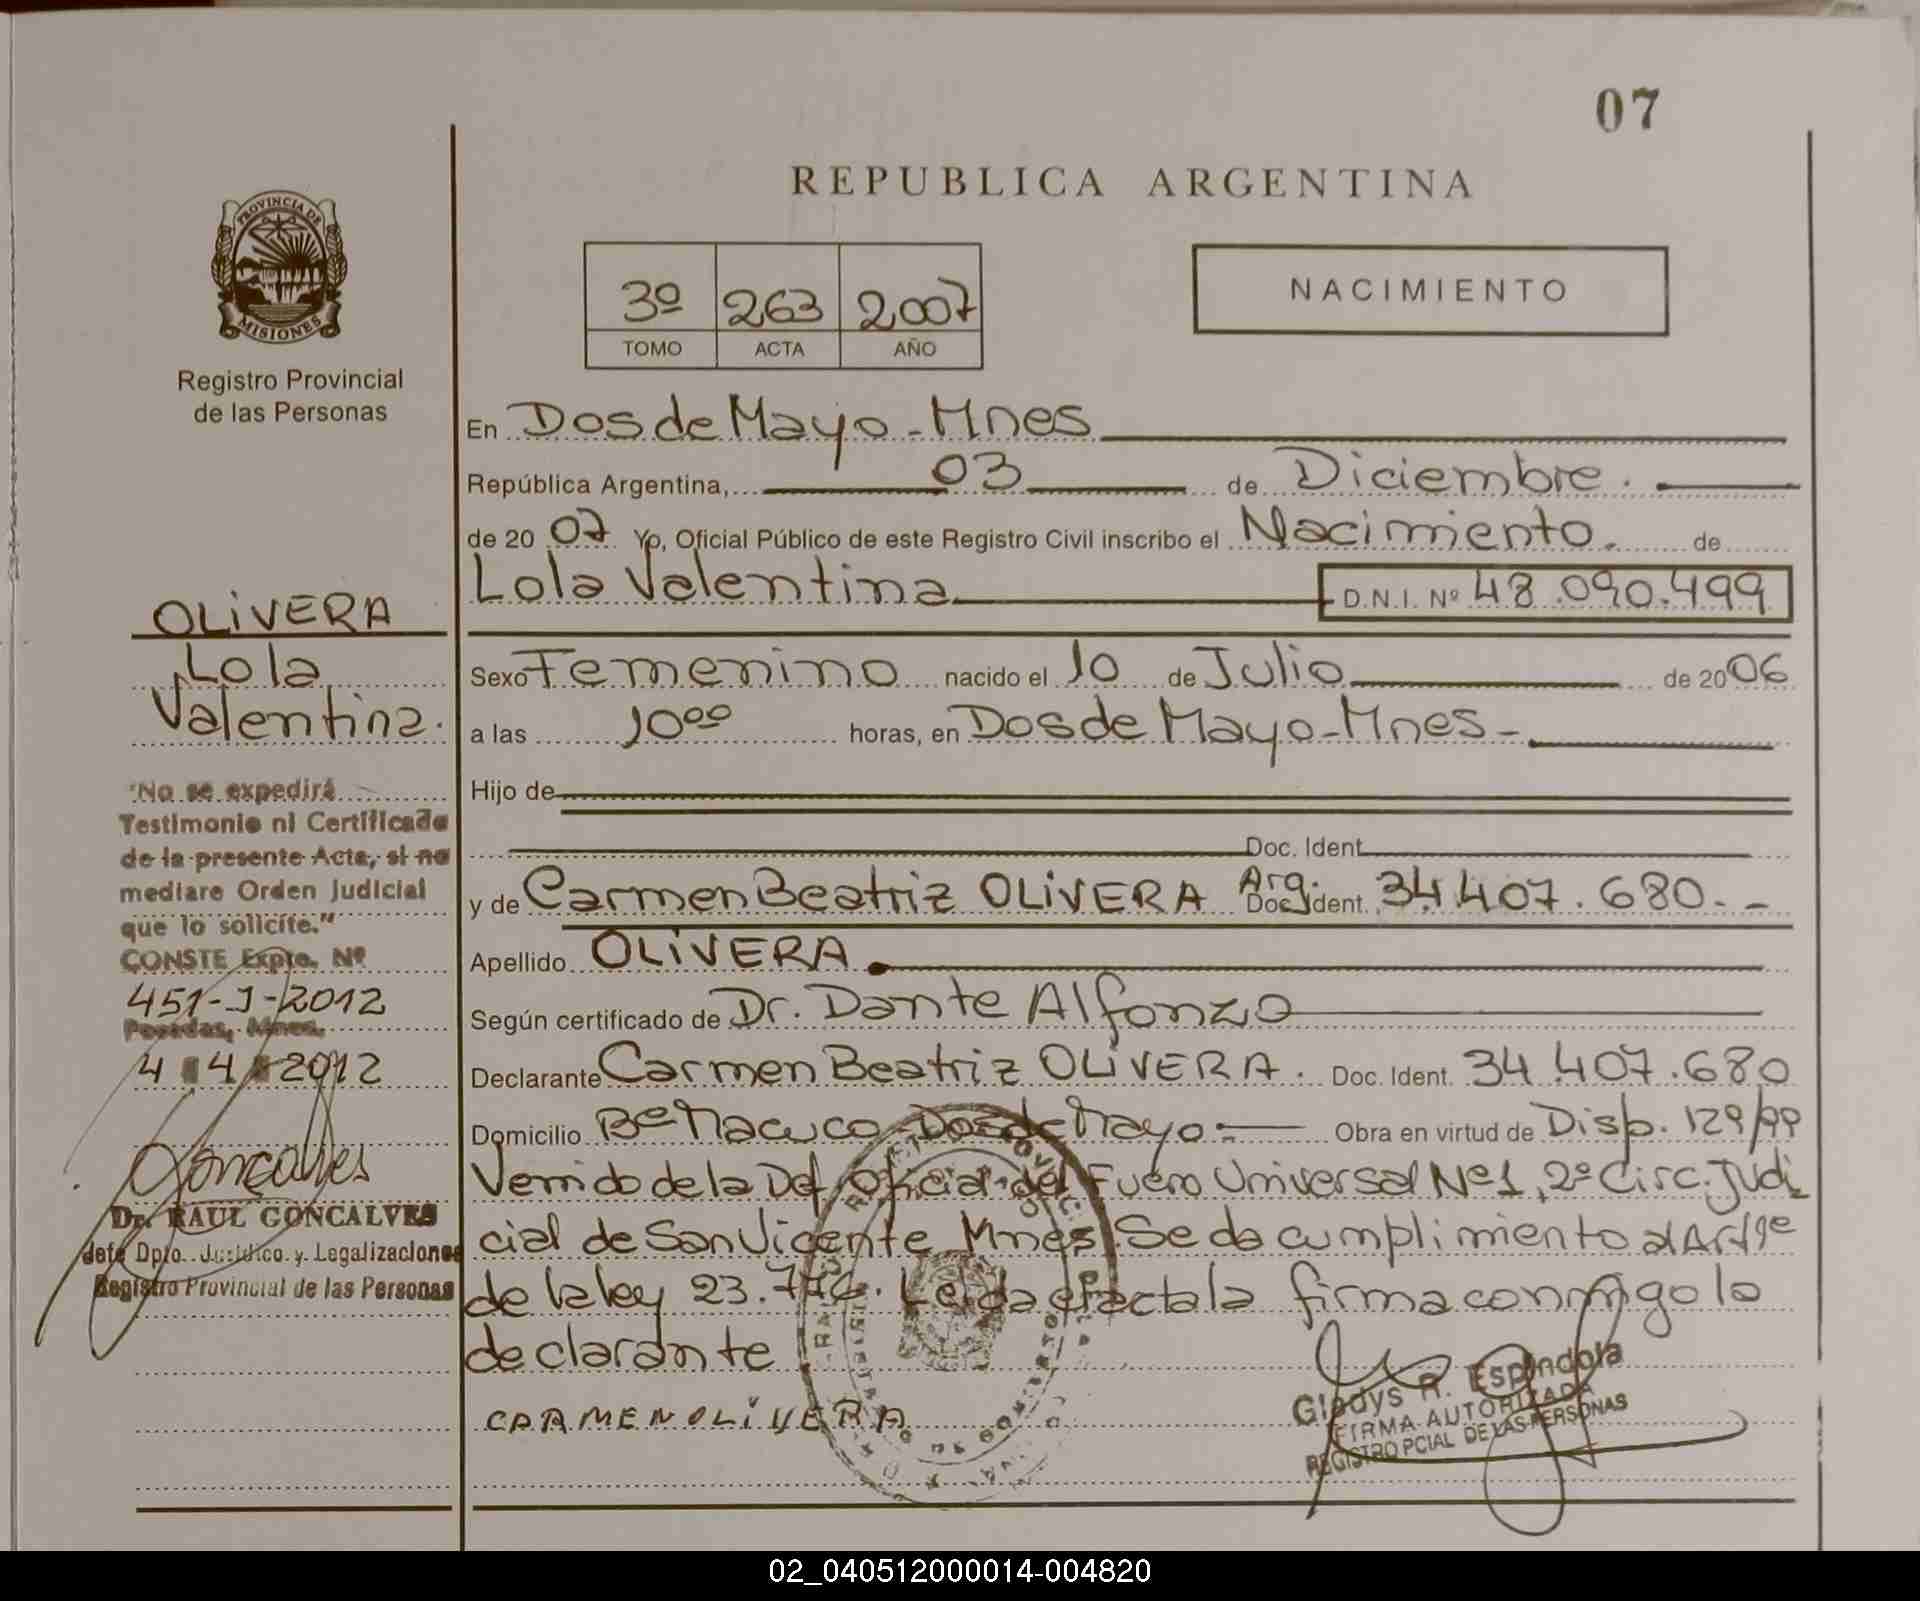 07
REPUBLICA ARGENTINA
PROVINCIA DE
MISIONES
Registro Provincial
de las Personas
3º 263 2007
TOMO ACTA AÑO
NACIMIENTO
En Dos de Mayo - Mnes
República Argentina, 03 de Diciembre.
de 2007 Yo, Oficial Público de este Registro Civil inscribo el Nacimiento. de
Lola Valentina D.N.I. Nº 48.090.499
Sexo Femenino nacido el 10 de Julio de 2006
a las 10ºº horas, en Dos de Mayo - Mnes -
Hijo de
Doc. Ident
y de Carmen Beatriz OLIVERA Arg. Doc. Ident. 34.407.680.-
Apellido OLIVERA.
Según certificado de Dr. Dante Alfonzo
Declarante Carmen Beatriz OLIVERA. Doc. Ident. 34.407.680
Domicilio Bº Macuco Dos de Mayo.- Obra en virtud de Disp. 129/99
Venido de la Def. Oficial del Fuero Universal Nº 1, 2º Circ. Judi
cial de San Vicente Mnes. Se da cumplimiento al Art 1º
de la ley 23.776. Leída el acta la firma conmigo la
declarante
CARMEN OLIVERA
Gladys R. Espindola
FIRMA AUTORIZADA
REGISTRO PCIAL DE LAS PERSONAS
OLIVERA
Lola
Valentina.
"No se expedirá
Testimonio ni Certificado
de la presente Acta, si no
mediare Orden Judicial
que lo solicite."
CONSTE Expte. Nº
451-J-2012
Posadas, Mnes.
4 4 2012
Goncalves
Dr. RAUL GONCALVES
Jefe Dpto. Jurídico y Legalizaciones
Registro Provincial de las Personas
02_040512000014-004820